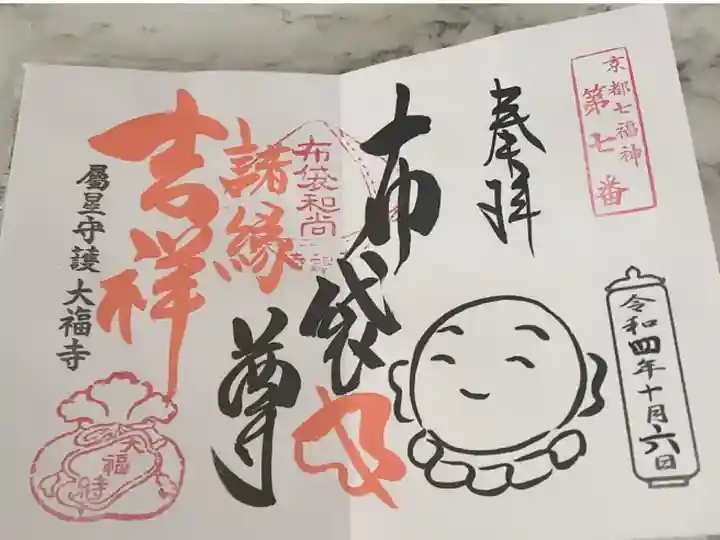 京都七福神
第七番
奉拝
令和四年十月六日
布袋尊
布袋和尚
諸縁
吉祥
屬星守護 大福寺
大福寺